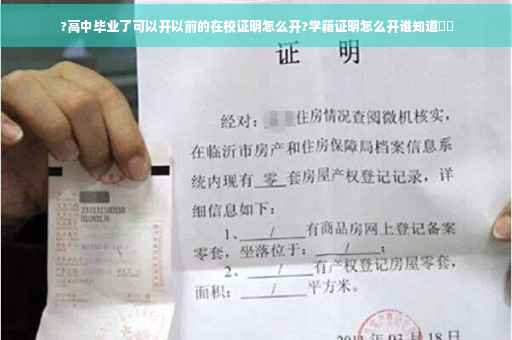 ?高中毕业了可以开以前的在校证明怎么开?学籍证明怎么开谁知道
证 明
经对: 住房情况查阅微机核实,
在临沂市房产和住房保障局档案信息系
统内现有 零 套房屋产权登记记录, 详
细信息如下:
1、 / 有商品房网上登记备案
零套, 坐落位于: / ;
2、 / 有产权登记房屋零套,
面积: / 平方米。
03 月 18 日